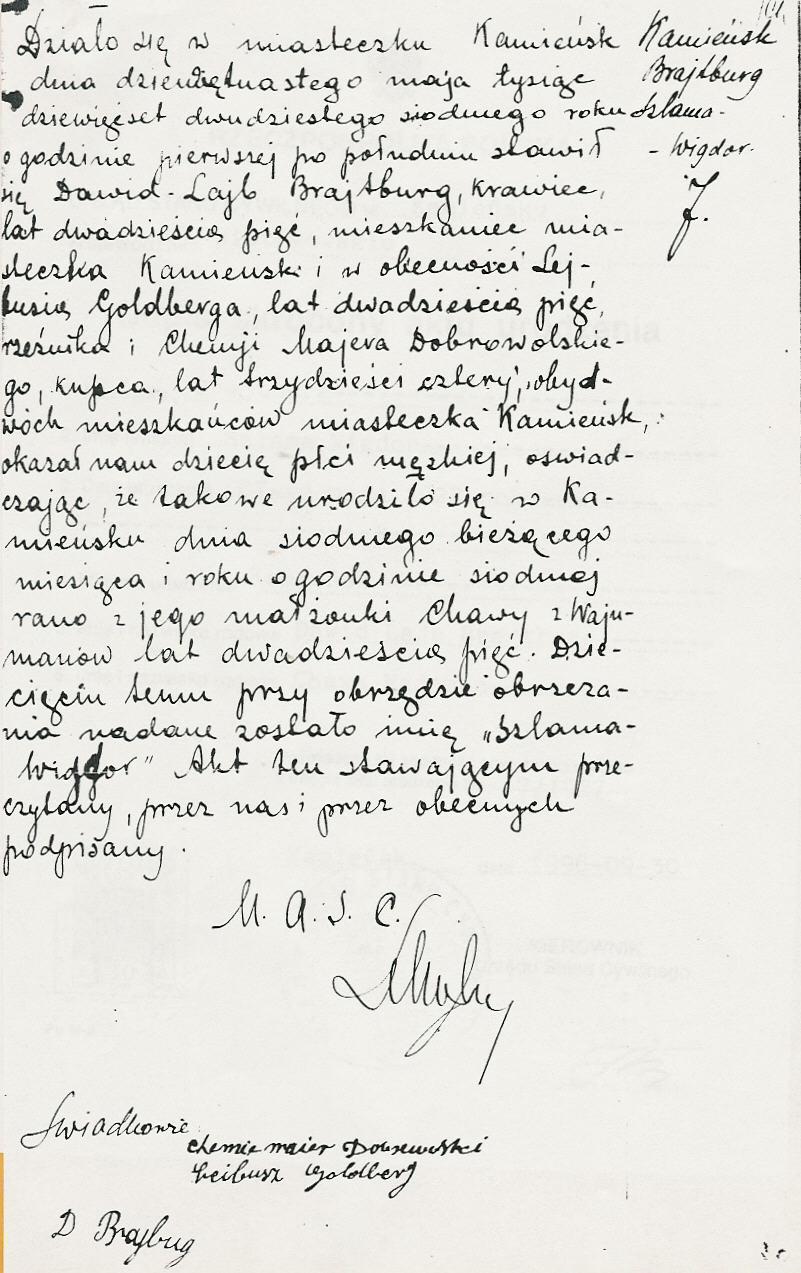 Działo się w miasteczku Kamieńsk
dnia dziewiętnastego maja tysiąc
dziewięćset dwudziestego siódmego roku
o godzinie pierwszej po południu stawił
się Dawid-Lajb Brajtburg, krawiec,
lat dwadzieścia pięć, mieszkaniec mia-
steczka Kamieńsk i w obecności Lej-
busia Goldberga, lat dwadzieścia pięć,
rzeźnika i Chemji Majera Dobrowolskie-
go, kupca, lat trzydzieści cztery, obyd-
wóch mieszkańców miasteczka Kamieńsk,
okazał nam dziecię płci męzkiej, oświad-
czając, że takowe urodziło się w Ka-
mieńsku dnia siódmego bieżącego
miesiąca i roku o godzinie siódmej
rano z jego małżonki Chawy z Waju-
manów lat dwadzieścia pięć. Dzie-
cięciu temu przy obrzędzie obrzeza-
nia nadane zostało imię „Szlama-
Wigdor" Akt ten stawającym prze-
czytany, przez nas i przez obecnych
podpisany.
Kamieńsk
Brajtburg
Szlama-
- Wigdor.
M. A. S. C.
Świadkowie
Chemie maier Dobrowolski
Leibusz Goldberg
D Brajbug